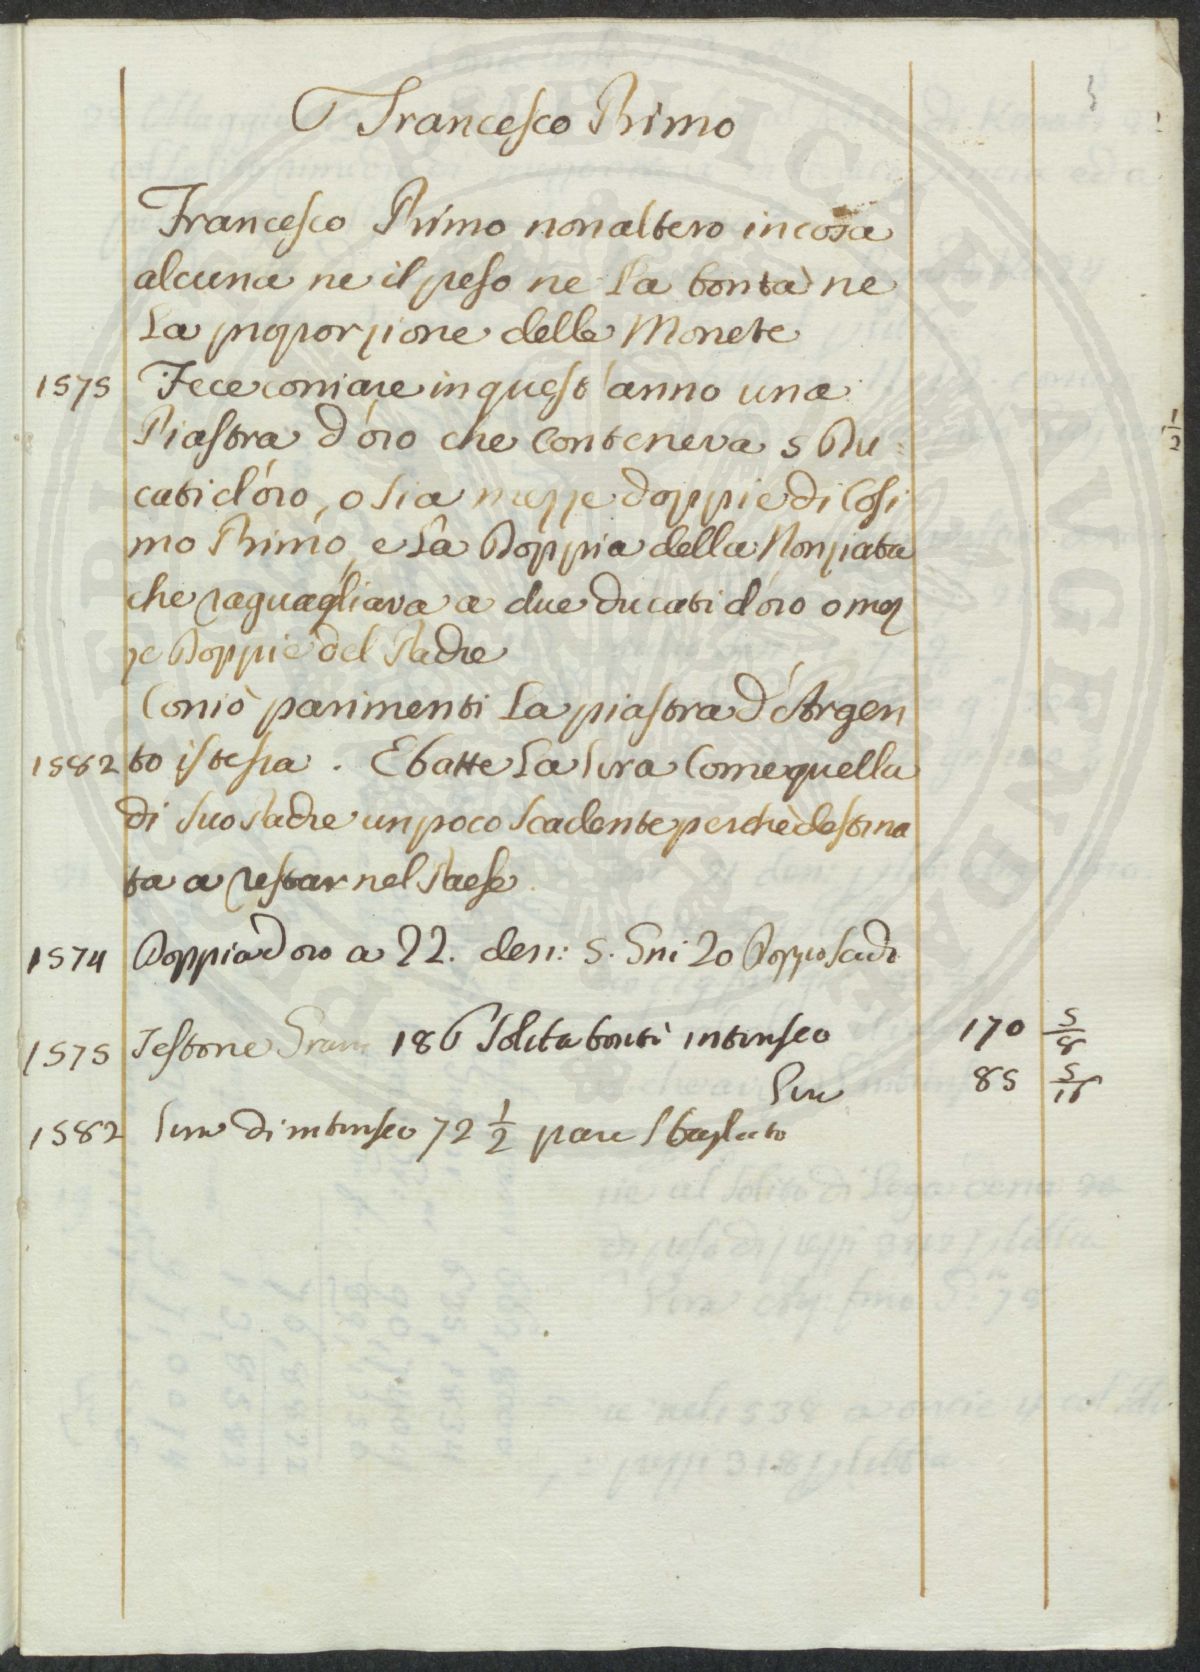 Francesco Primo
Francesco Primo non alterò in cosa
alcuna ne il peso ne La bontà ne
La proporzione delle Monete
1575 Fece coniare in quest'anno una
Piastra d'oro che Conteneva 5 Du=
cati d'oro, o sia mezze doppie di Cosi
mo Primo, e La Doppia della Nonziata
che raguagliava a due ducati d'oro o mez
ze Doppie del Padre
Coniò parimenti La piastra d'Argen
1582 to istessa. E batte La Lira Come quella
di suo Padre un poco scadente perchè destina
ta a restar nel Paese.
1574 Doppia d'oro a 22. den: 5. Gni 20 Doppio scudo
1575 Testone Grani 186 solita bontà intrinseco 170 5/8
Lire 85 5/16
1582 Lira di intrinseco 72 1/2 pare sbagliato